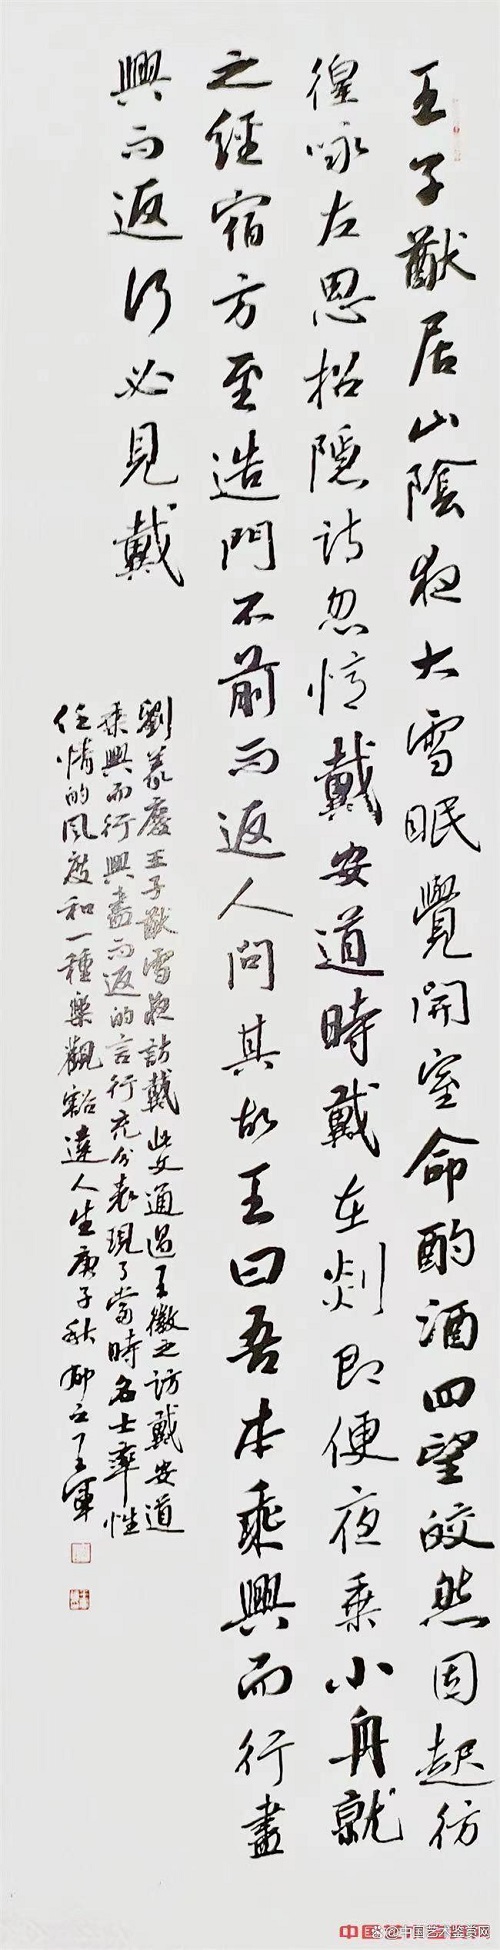 王子猷居山陰夜大雪眠覺開室命酌酒四望皎然因起彷
徨咏左思招隱詩忽憶戴安道時戴在剡即便夜乘小舟就
之經宿方至造門不前而返人問其故王曰吾本乘興而行盡
興而返何必見戴
劉義慶王子猷雪夜訪戴 此文通過王徽之訪戴安道
乘興而行興盡而返的言行充分表現了當時名士率性
任情的风度和一種樂觀豁達人生庚子秋 王軍
@中国艺术鉴赏网